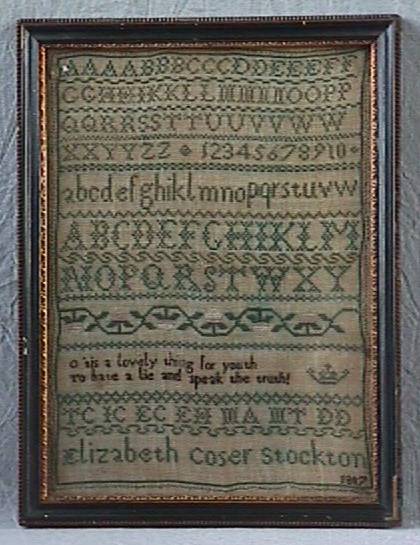 AAAABBBCCCDDEEEFF
GGHHIKKLLMMNNOOPP
QQRRSSTTUUVVWW
XXYYZZ 12345678910
abcdefghiklmnopqrstuvw
ABCDEFGHIKLM
NOPQRSTWXY
O 'tis a lovely thing for youth
To hate a lie and speak the truth!
TC IC EC DD
Elizabeth Coser Stockton